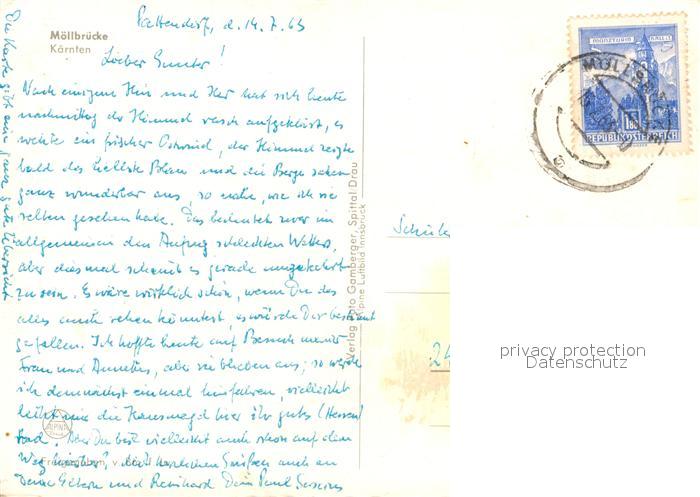 Möllbrücke
Kärnten
d. 14.7.63
Lieber Gunter!
Nach einigem Hin und Her hat sich heute
nachmittag der Himmel rasch aufgeklärt, es
wehte ein frischer Ostwind, der Himmel zeigte
bald das hellste Blau und die Berge sahen
ganz wunderbar aus, so nahe, wie ich sie
selten gesehen habe. Das bedeutet zwar im
allgemeinen den Anfang schlechten Wetters,
aber diesmal scheint es gerade umgekehrt
zu sein. Es wäre wirklich schön, wenn Du das
alles auch sehen könntest, es würde Dir bestimmt
gefallen. Ich hoffte heute auf Besuch meiner
Frau und, aber sie blieben aus; so werde
ich demnächst einmal hinfahren, vielleicht
leiht mir die hier ihr gutes
Rad. Aber Du bist vielleicht auch schon auf dem
Weg hierher? Mit herzlichen Grüßen auch an
Deine Eltern und Reinhard Dein Paul
Die Karte gibt eine ganz gute Übersicht
Verlag Foto Gamberger, Spittal Drau
Alpine Luftbild Innsbruck
ALPINE
Freigegeben v.
MÖLLBRÜCKE
MÜNZTURM HALL i. T.
1.80
REPUBLIK ÖSTERREICH
privacy protection
Datenschutz